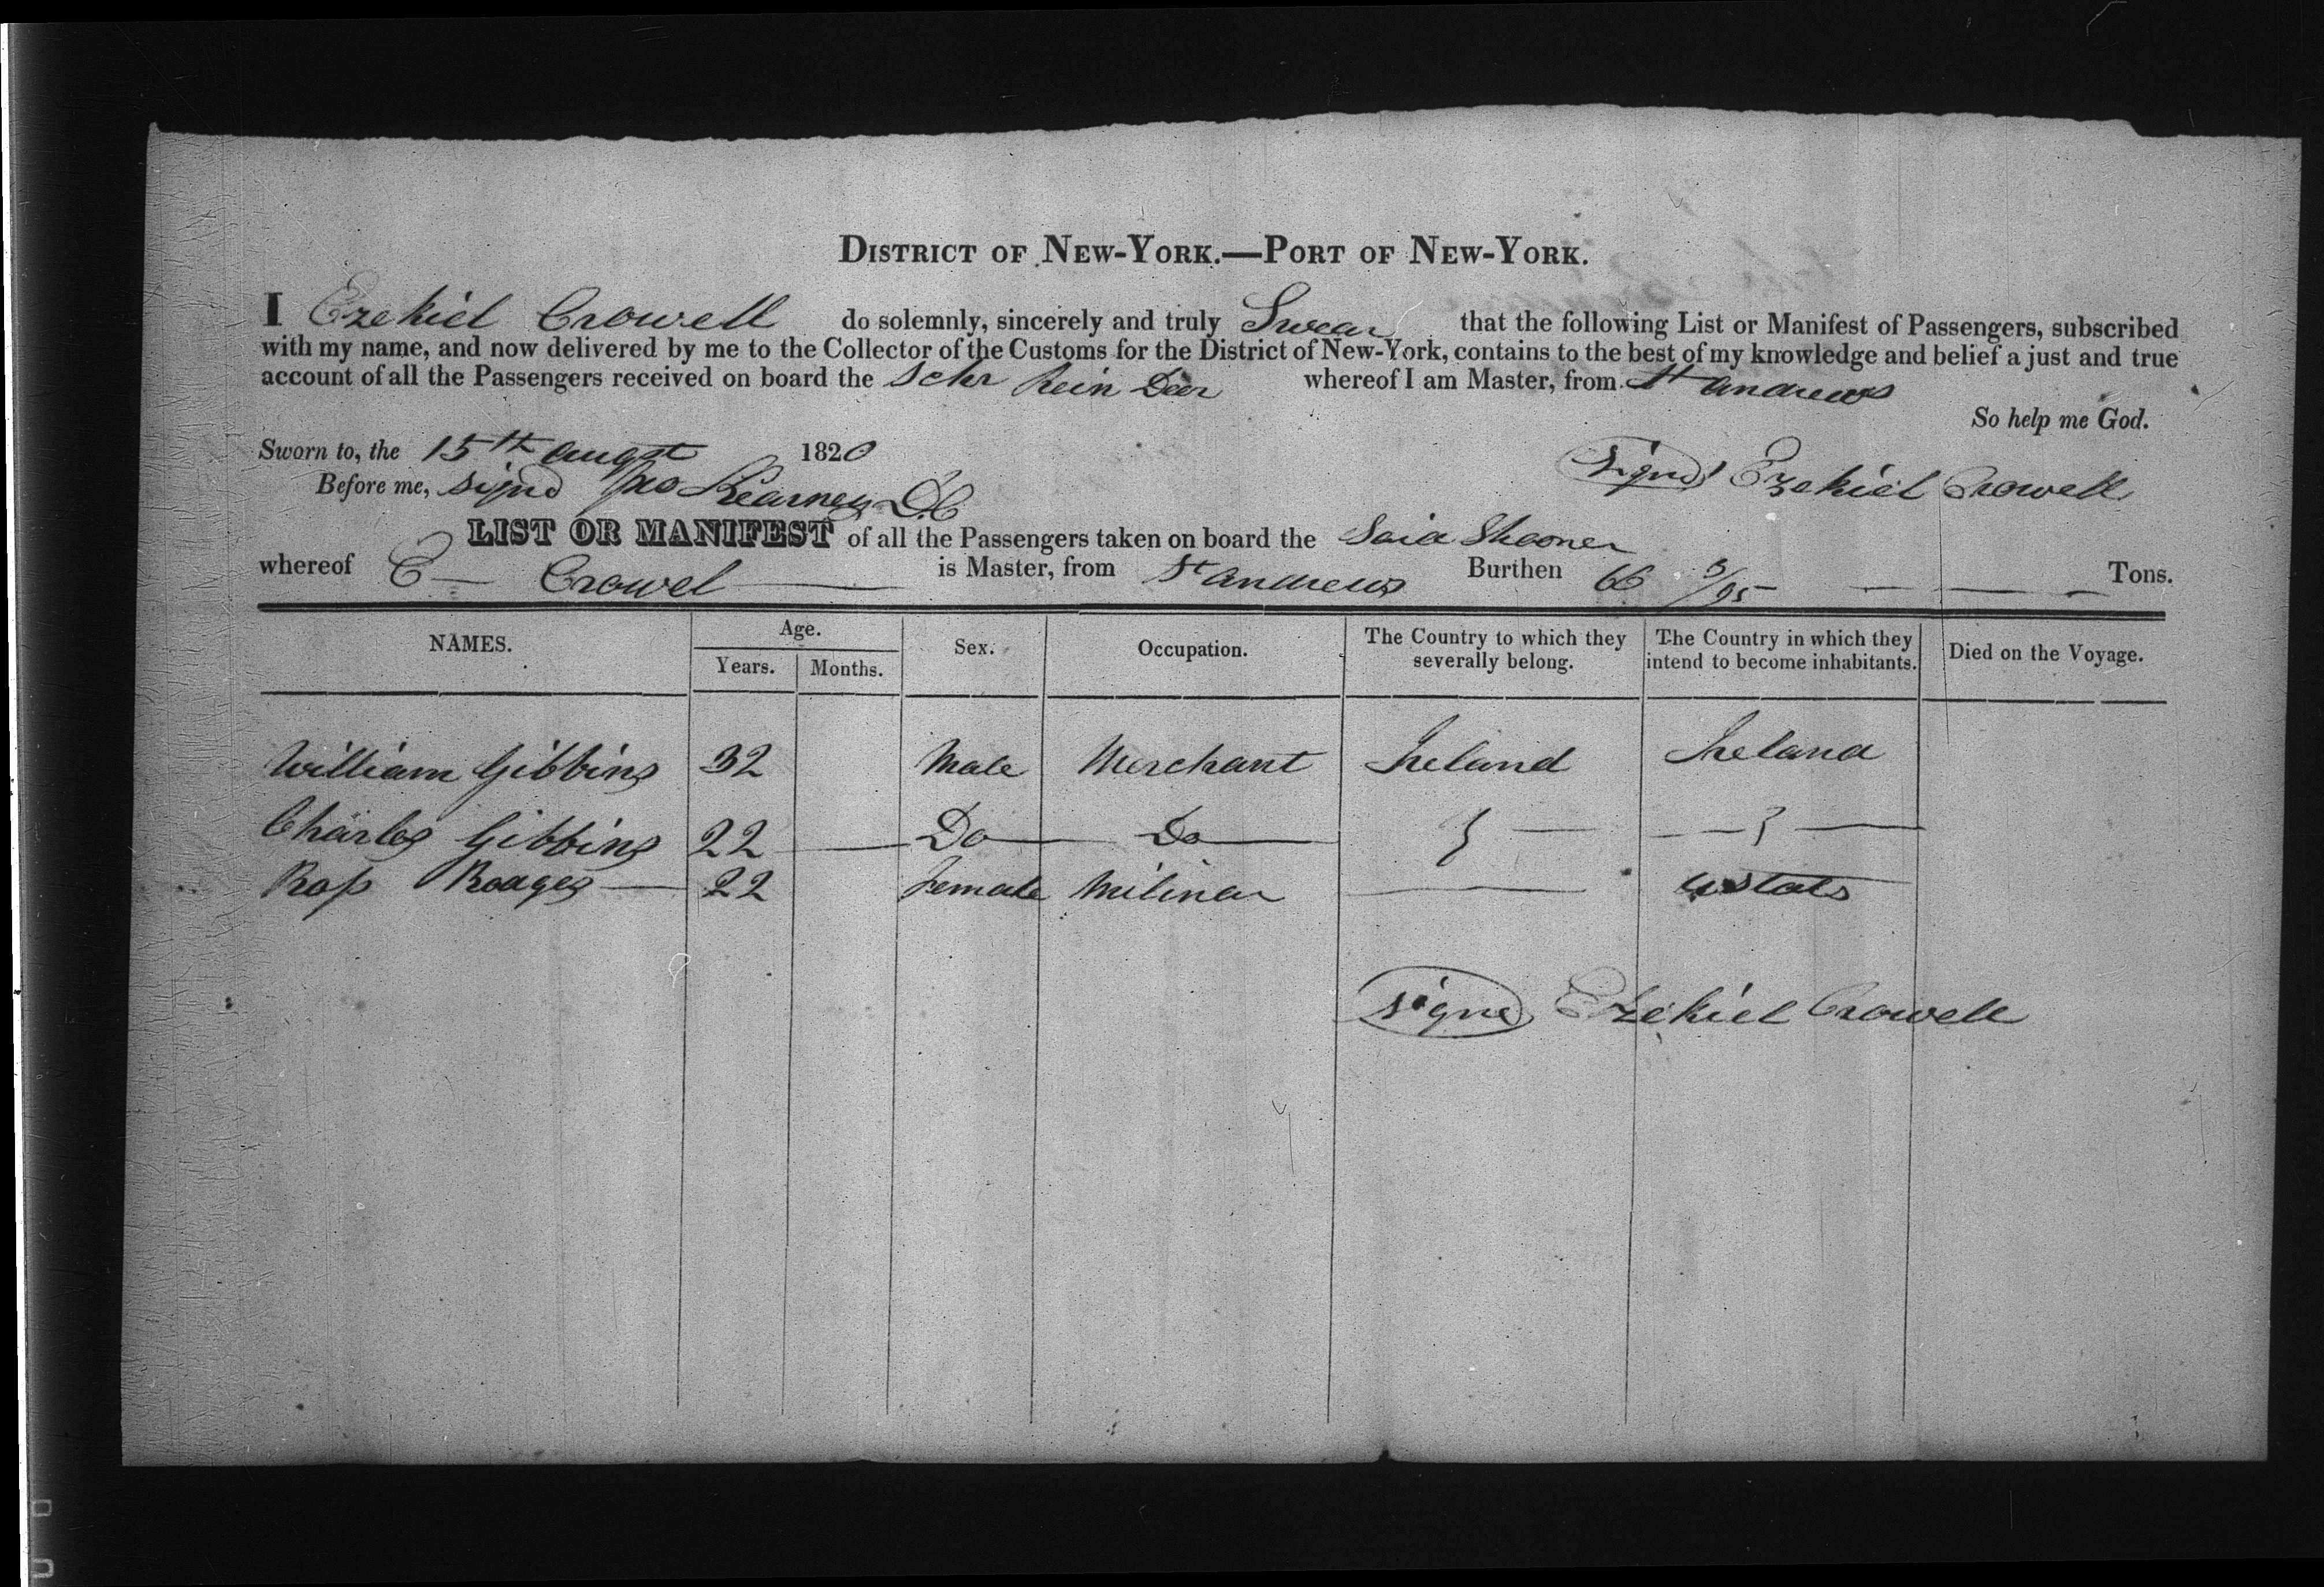 DISTRICT OF NEW-YORK.—PORT OF NEW-YORK.
I Ezekiel Crowell do solemnly, sincerely and truly Swear that the following List or Manifest of Passengers, subscribed
with my name, and now delivered by me to the Collector of the Customs for the District of New-York, contains to the best of my knowledge and belief a just and true
account of all the Passengers received on board the Schr Rein Deer whereof I am Master, from St Andrews
So help me God.
Sworn to, the 15th Augst 1820
Signd Ezekiel Crowell
Before me, signd Jno Kearney D.C
LIST OR MANIFEST of all the Passengers taken on board the Said Shooner
whereof E— Crowel is Master, from St Andrews Burthen 66 3/95 Tons.
NAMES. Age. Sex. Occupation. The Country to which they severally belong. The Country in which they intend to become inhabitants. Died on the Voyage.
Years. Months.
William Gibbins 32 Male Merchant Ireland Ireland
Charles Gibbins 22 — Do — Do —
22 Female Miliner — UStats
signd Ezekiel Crowell